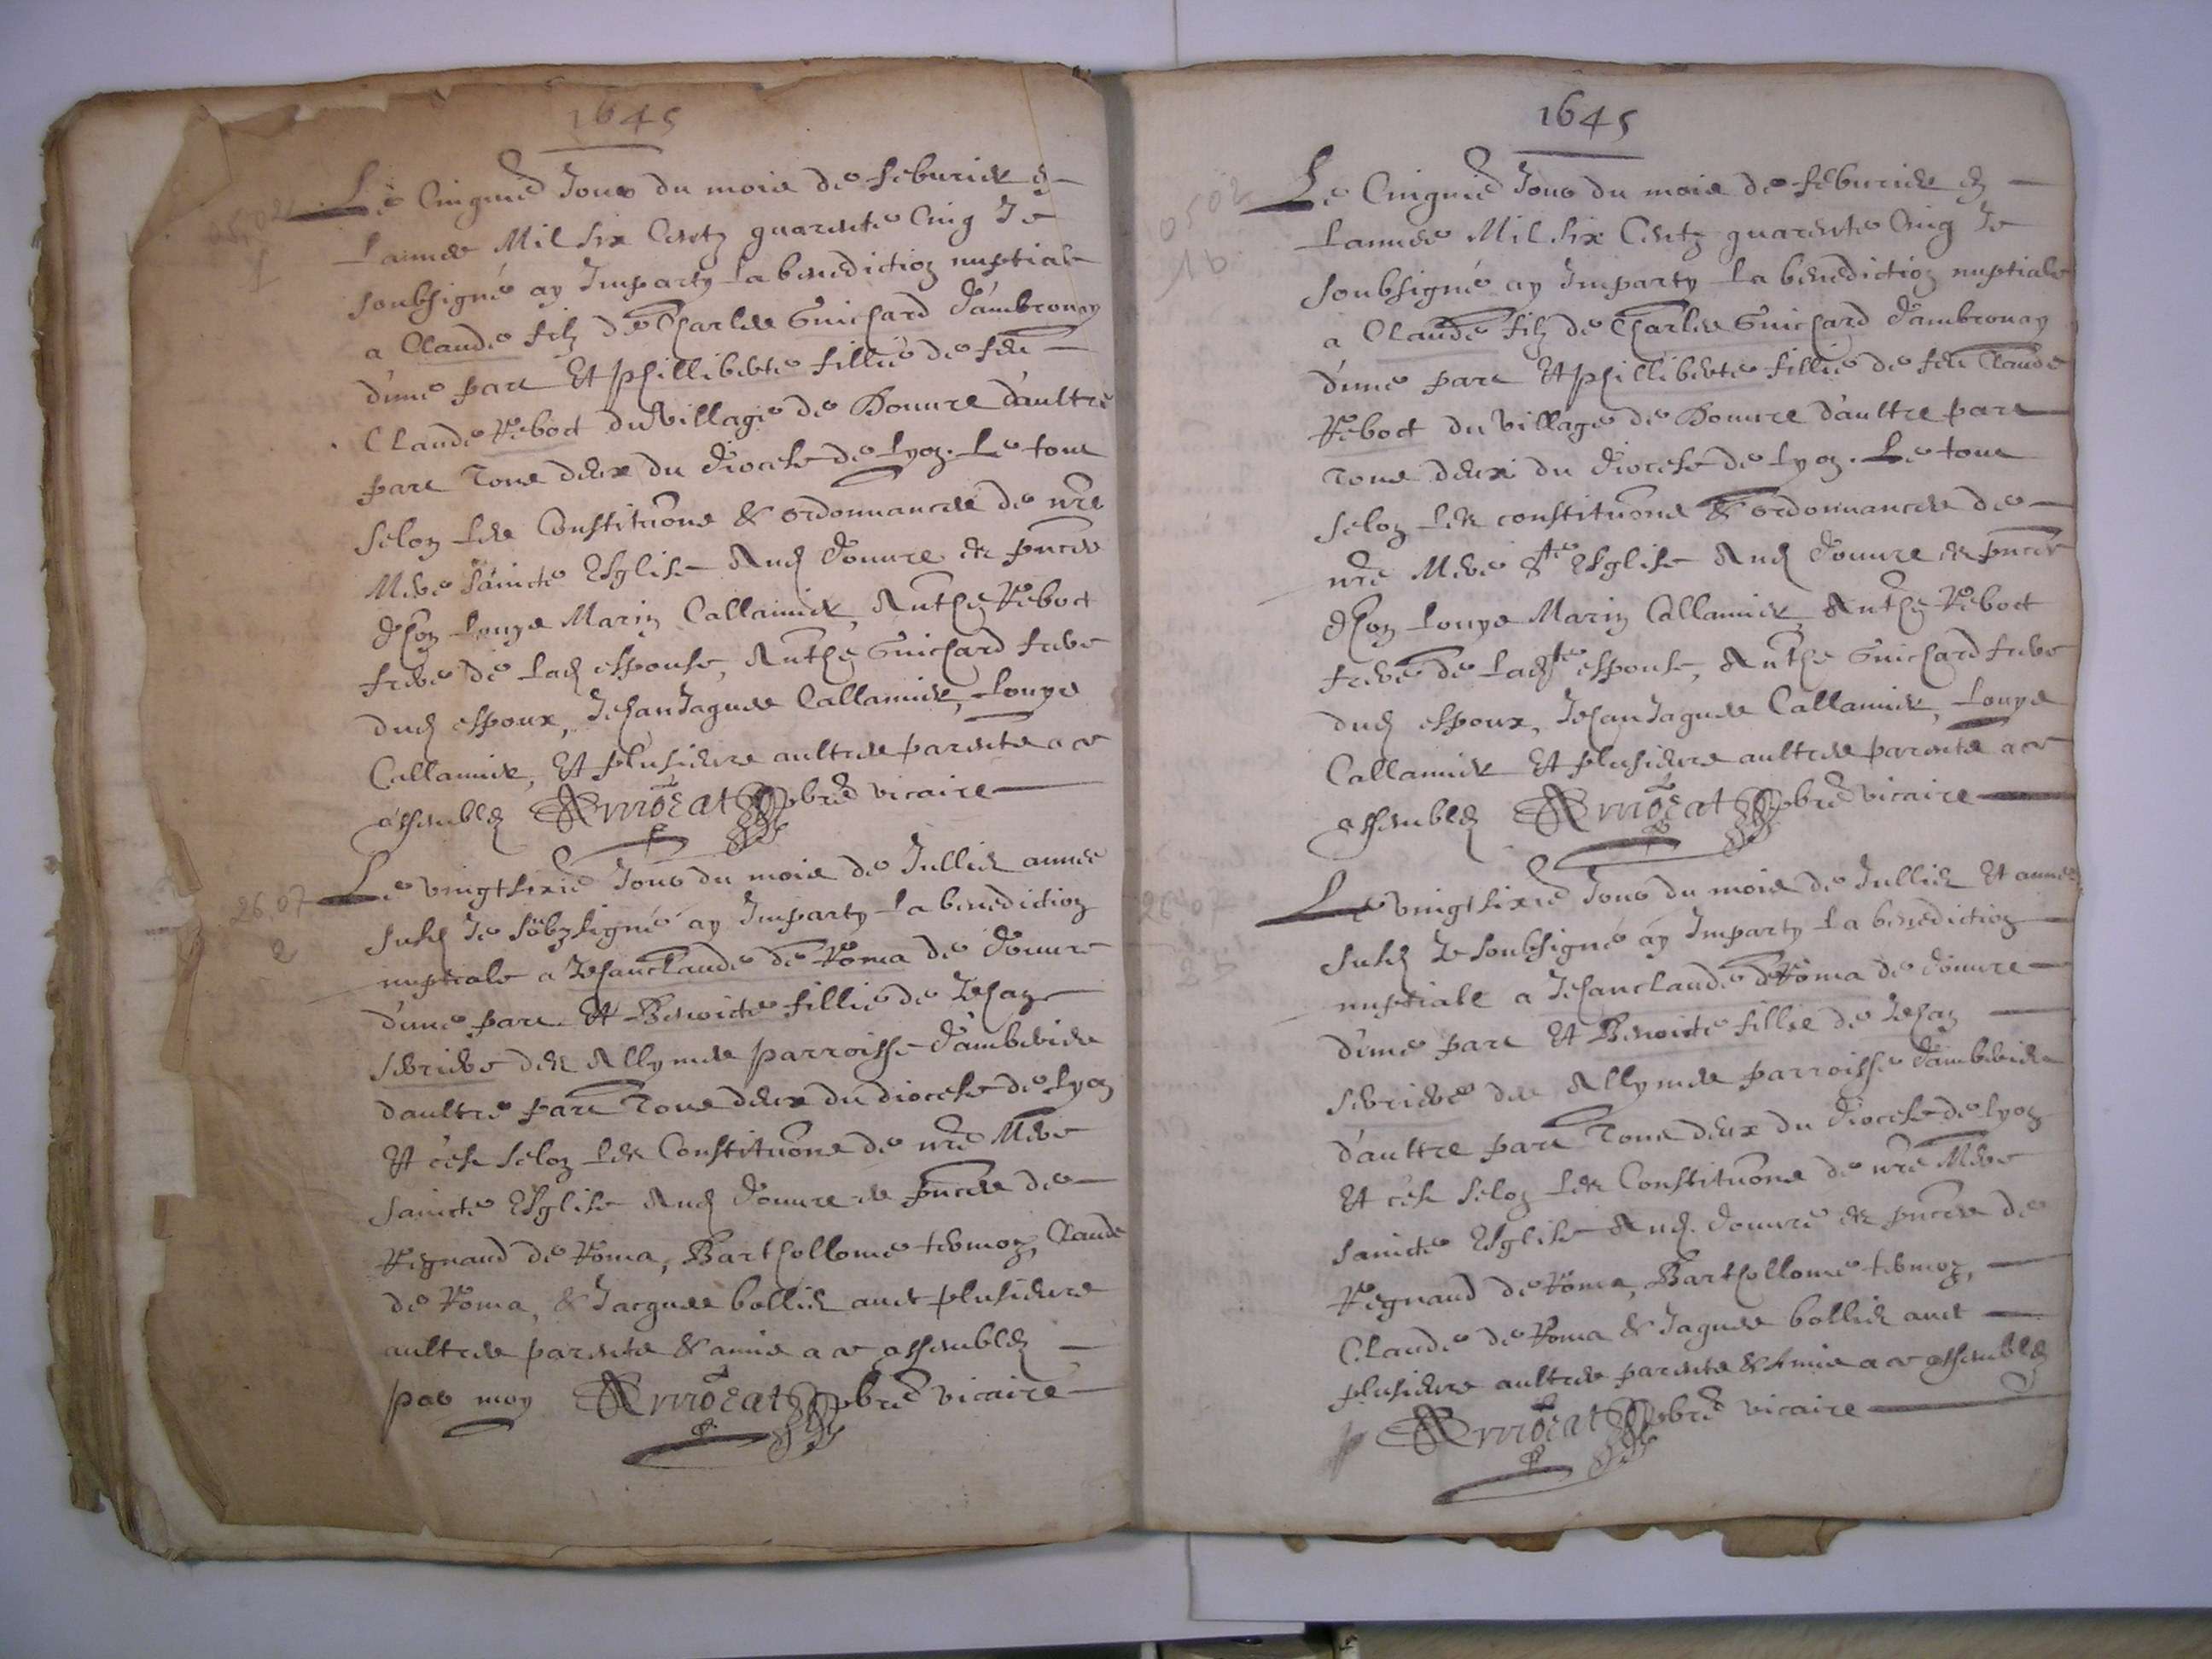 1645
Le Cinqme Jour du mois de feburier &
Lannee Mil Six Centz quarente Cinq Je
soubsigné ay Imparty la benediction nuptiale
a Claude filz de Charles Guichard d'ambronay
d'une part Et philliberte fillie de feu
Claude Reboct du village de Douure d'aultre
part Tous deux du diocese de Lyon. Le tout
selon les Constituõns & ordonnances de nre
Mere Saincte Esglise Aud Douure es pnces
dhon Louys Marin Callamier, Anthe Reboct
frere de lad espouse, Anthe Guichard frere
dud espoux, Jehan Jaques Callamier, Louys
Callamier, Et plusieurs aultres parents a ce
assemblez pbre vicaire
26.07
2
Le vingt sixie Jour du mois de Jullie annee
susd Je sobzsigné ay Imparty la benediction
nuptiale a Jehanclaude de Roma de Douure
d'une part Et Benoicte fillie de Jehan
des Allymes parroisse d'amberieu
daultre part Tous deux du diocese de Lyon
Et ce selon les Constituõns de nre Mere
Saincte Esglise Aud Douure es pnces de
Regnaud de Roma, Barthollome termoz, Claude
de Roma, & Jacques bollie auec plusieurs
aultres parents & amis a ce assemblez
par moy pbre vicaire
1645
0502
1b
Le Cinqme Jour du mois de feburier &
Lannee Mil Six Centz quarente Cinq Je
soubsigné ay Imparty la benediction nuptiale
a Claude filz de Charles Guichard d'ambronay
d'une part Et philliberte fillie de feu Claude
Reboct du village de Douure d'aultre part
Tous deux du diocese de Lyon. Le tout
selon les constituõns & ordonnances de
nre Mere Ste Esglise Aud Douure es pnces
dhon Louys Marin Callamier Anthe Reboct
frere de ladte espouse, Anthe Guichard frere
dud espoux, Jehan Jaques Callamier, Louys
Callamier Et plusieurs aultres parents a ce
assemblez pbre vicaire
26 07
Le vingt sixie Jour du mois de Jullie Et annee
susd Je soubsigné ay Imparty la benediction
nuptiale a Jehanclaude de Roma de Douure
d'une part Et Benoicte fillie de Jehan
des Allymes parroisse d'amberieu
d'aultre part Tous deux du diocese de Lyon
Et ce selon les Constituõns de nre Mere
Saincte Esglise Aud. Douure es pnces de
Regnaud de Roma, Barthollome termoz,
Claude de Roma & Jaques bollie auec
plusieurs aultres parents & Amis a ce assemblez
pbre vicaire